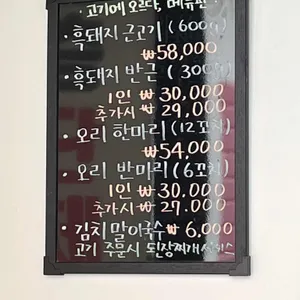 고기에 오르다, 메뉴판
• 흑돼지 근고기 (600g)
₩58,000
• 흑돼지 반근 (300g)
1인 ₩30,000
추가시 ₩29,000
• 오리 한마리 (12꼬치)
₩54,000
• 오리 반마리 (6꼬치)
1인 ₩30,000
추가시 ₩27,000
• 김치말이국수 ₩6,000
고기 주문시 된장찌개 서비스